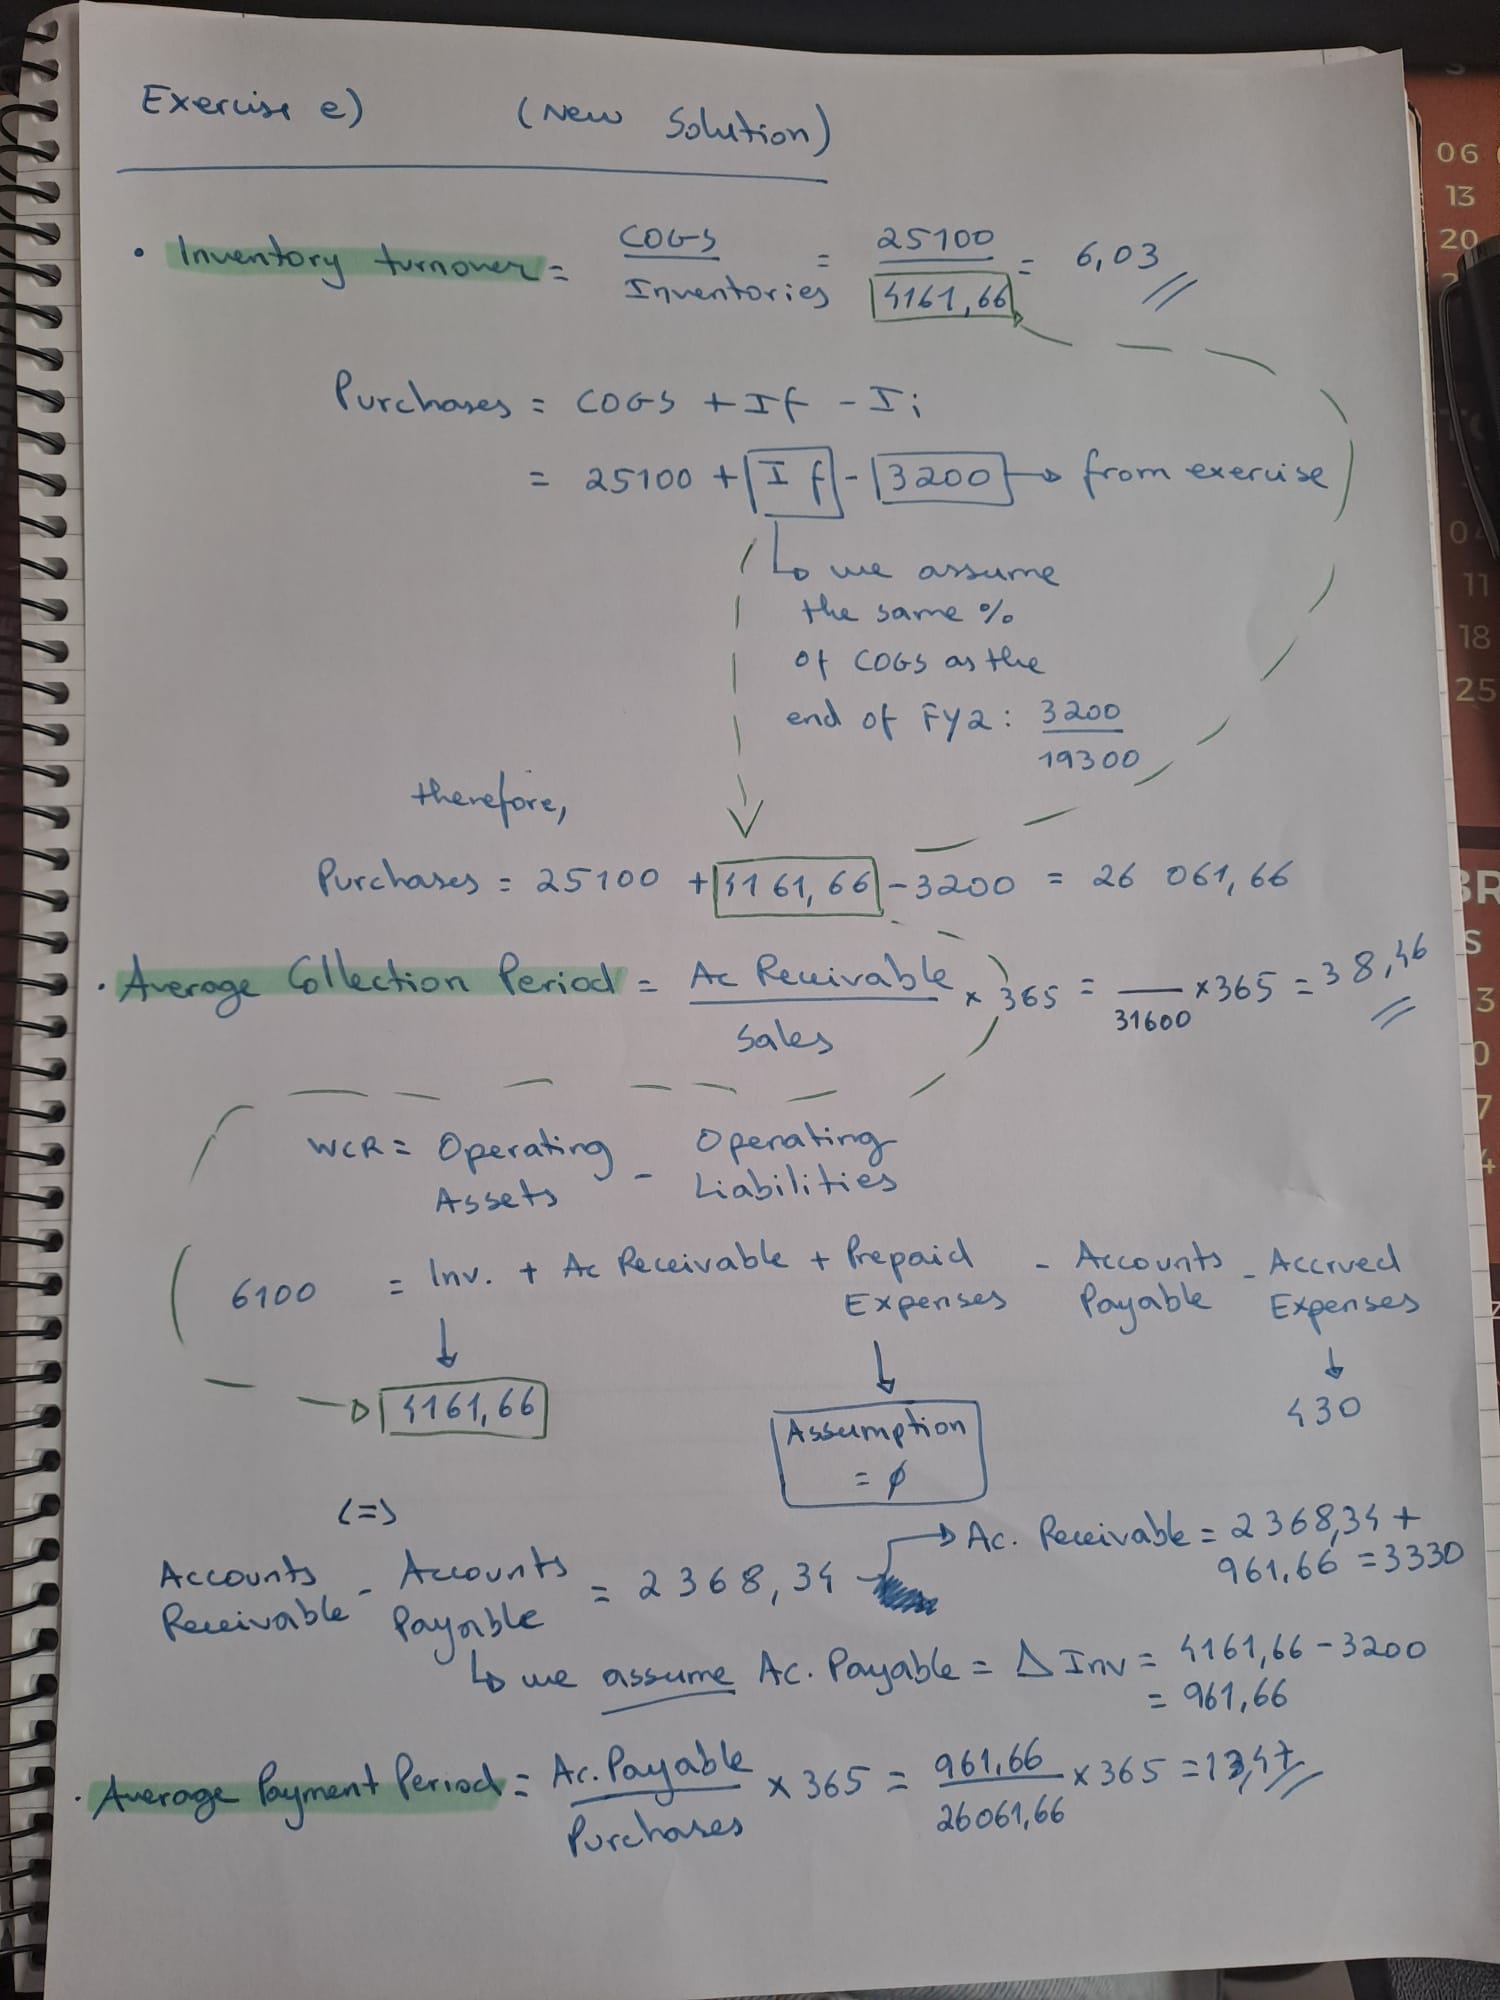 Exercise e) (New Solution)
• Inventory turnover = COGS / Inventories = 25100 / 4161,66 = 6,03
Purchases = COGS + If - Ii
= 25100 + If - 3200 → from exercise
↳ we assume
the same %
of COGS as the
end of FY2: 3200 / 19300
therefore,
Purchases = 25100 + 4161,66 - 3200 = 26 061,66
• Average Collection Period = Ac Receivable / Sales × 365 = — / 31600 × 365 = 38,46
WCR = Operating Assets - Operating Liabilities
6100 = Inv. + Ac Receivable + Prepaid Expenses - Accounts Payable - Accrued Expenses
↓ ↓ ↓
4161,66 Assumption = ϕ 430
(=)
Accounts Receivable - Accounts Payable = 2368,34 → Ac. Receivable = 2368,34 +
961,66 = 3330
↳ we assume Ac. Payable = Δ Inv = 4161,66 - 3200
= 961,66
• Average Payment Period = Ac. Payable / Purchases × 365 = 961,66 / 26061,66 × 365 = 13,47
06
13
20
04
11
18
25
BR
S
3
0
7
4